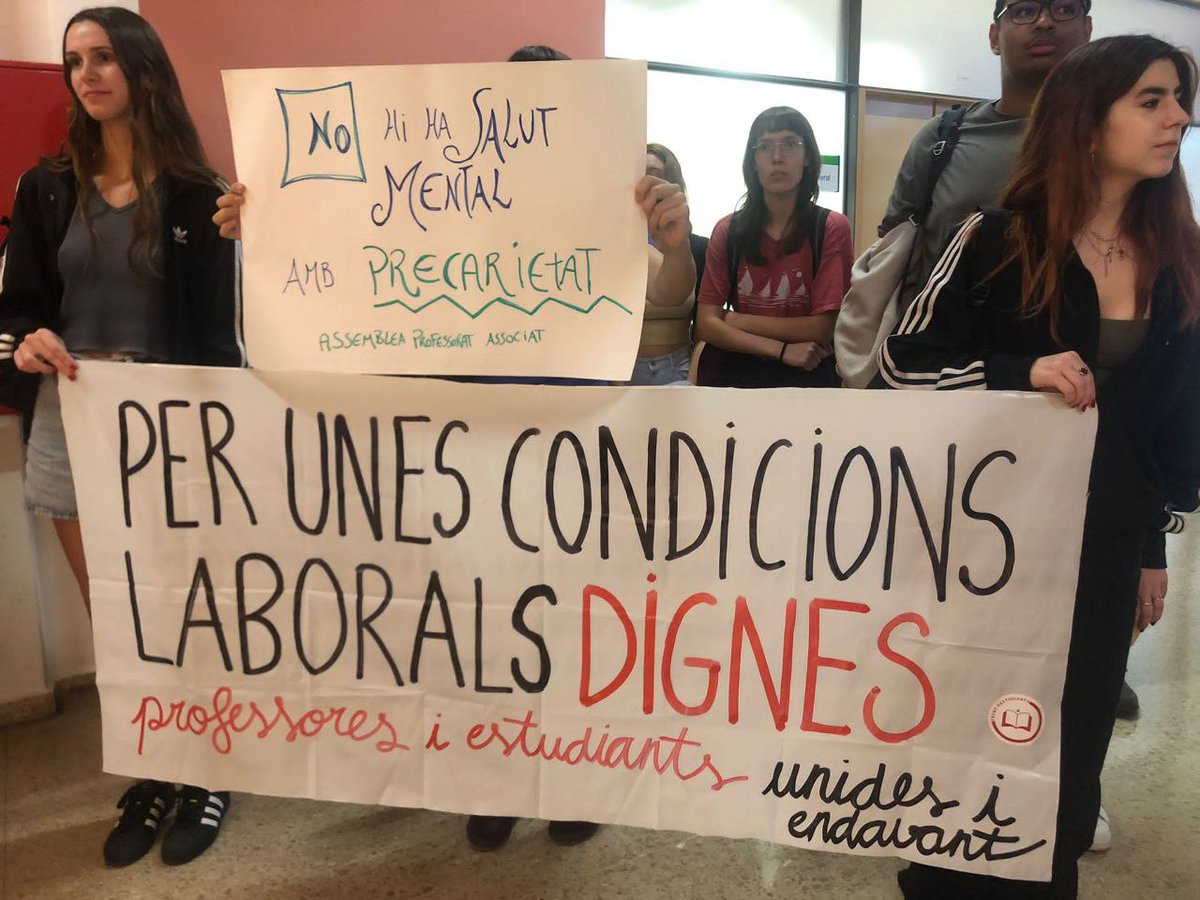 No Hi HA SALUT
MENTAL
AMB PRECARIETAT
ASSEMBLEA PROFESSORAT ASSOCIAT
PER UNES CONDICIONS
LABORALS DIGNES
professores i estudiants unides i
endavant